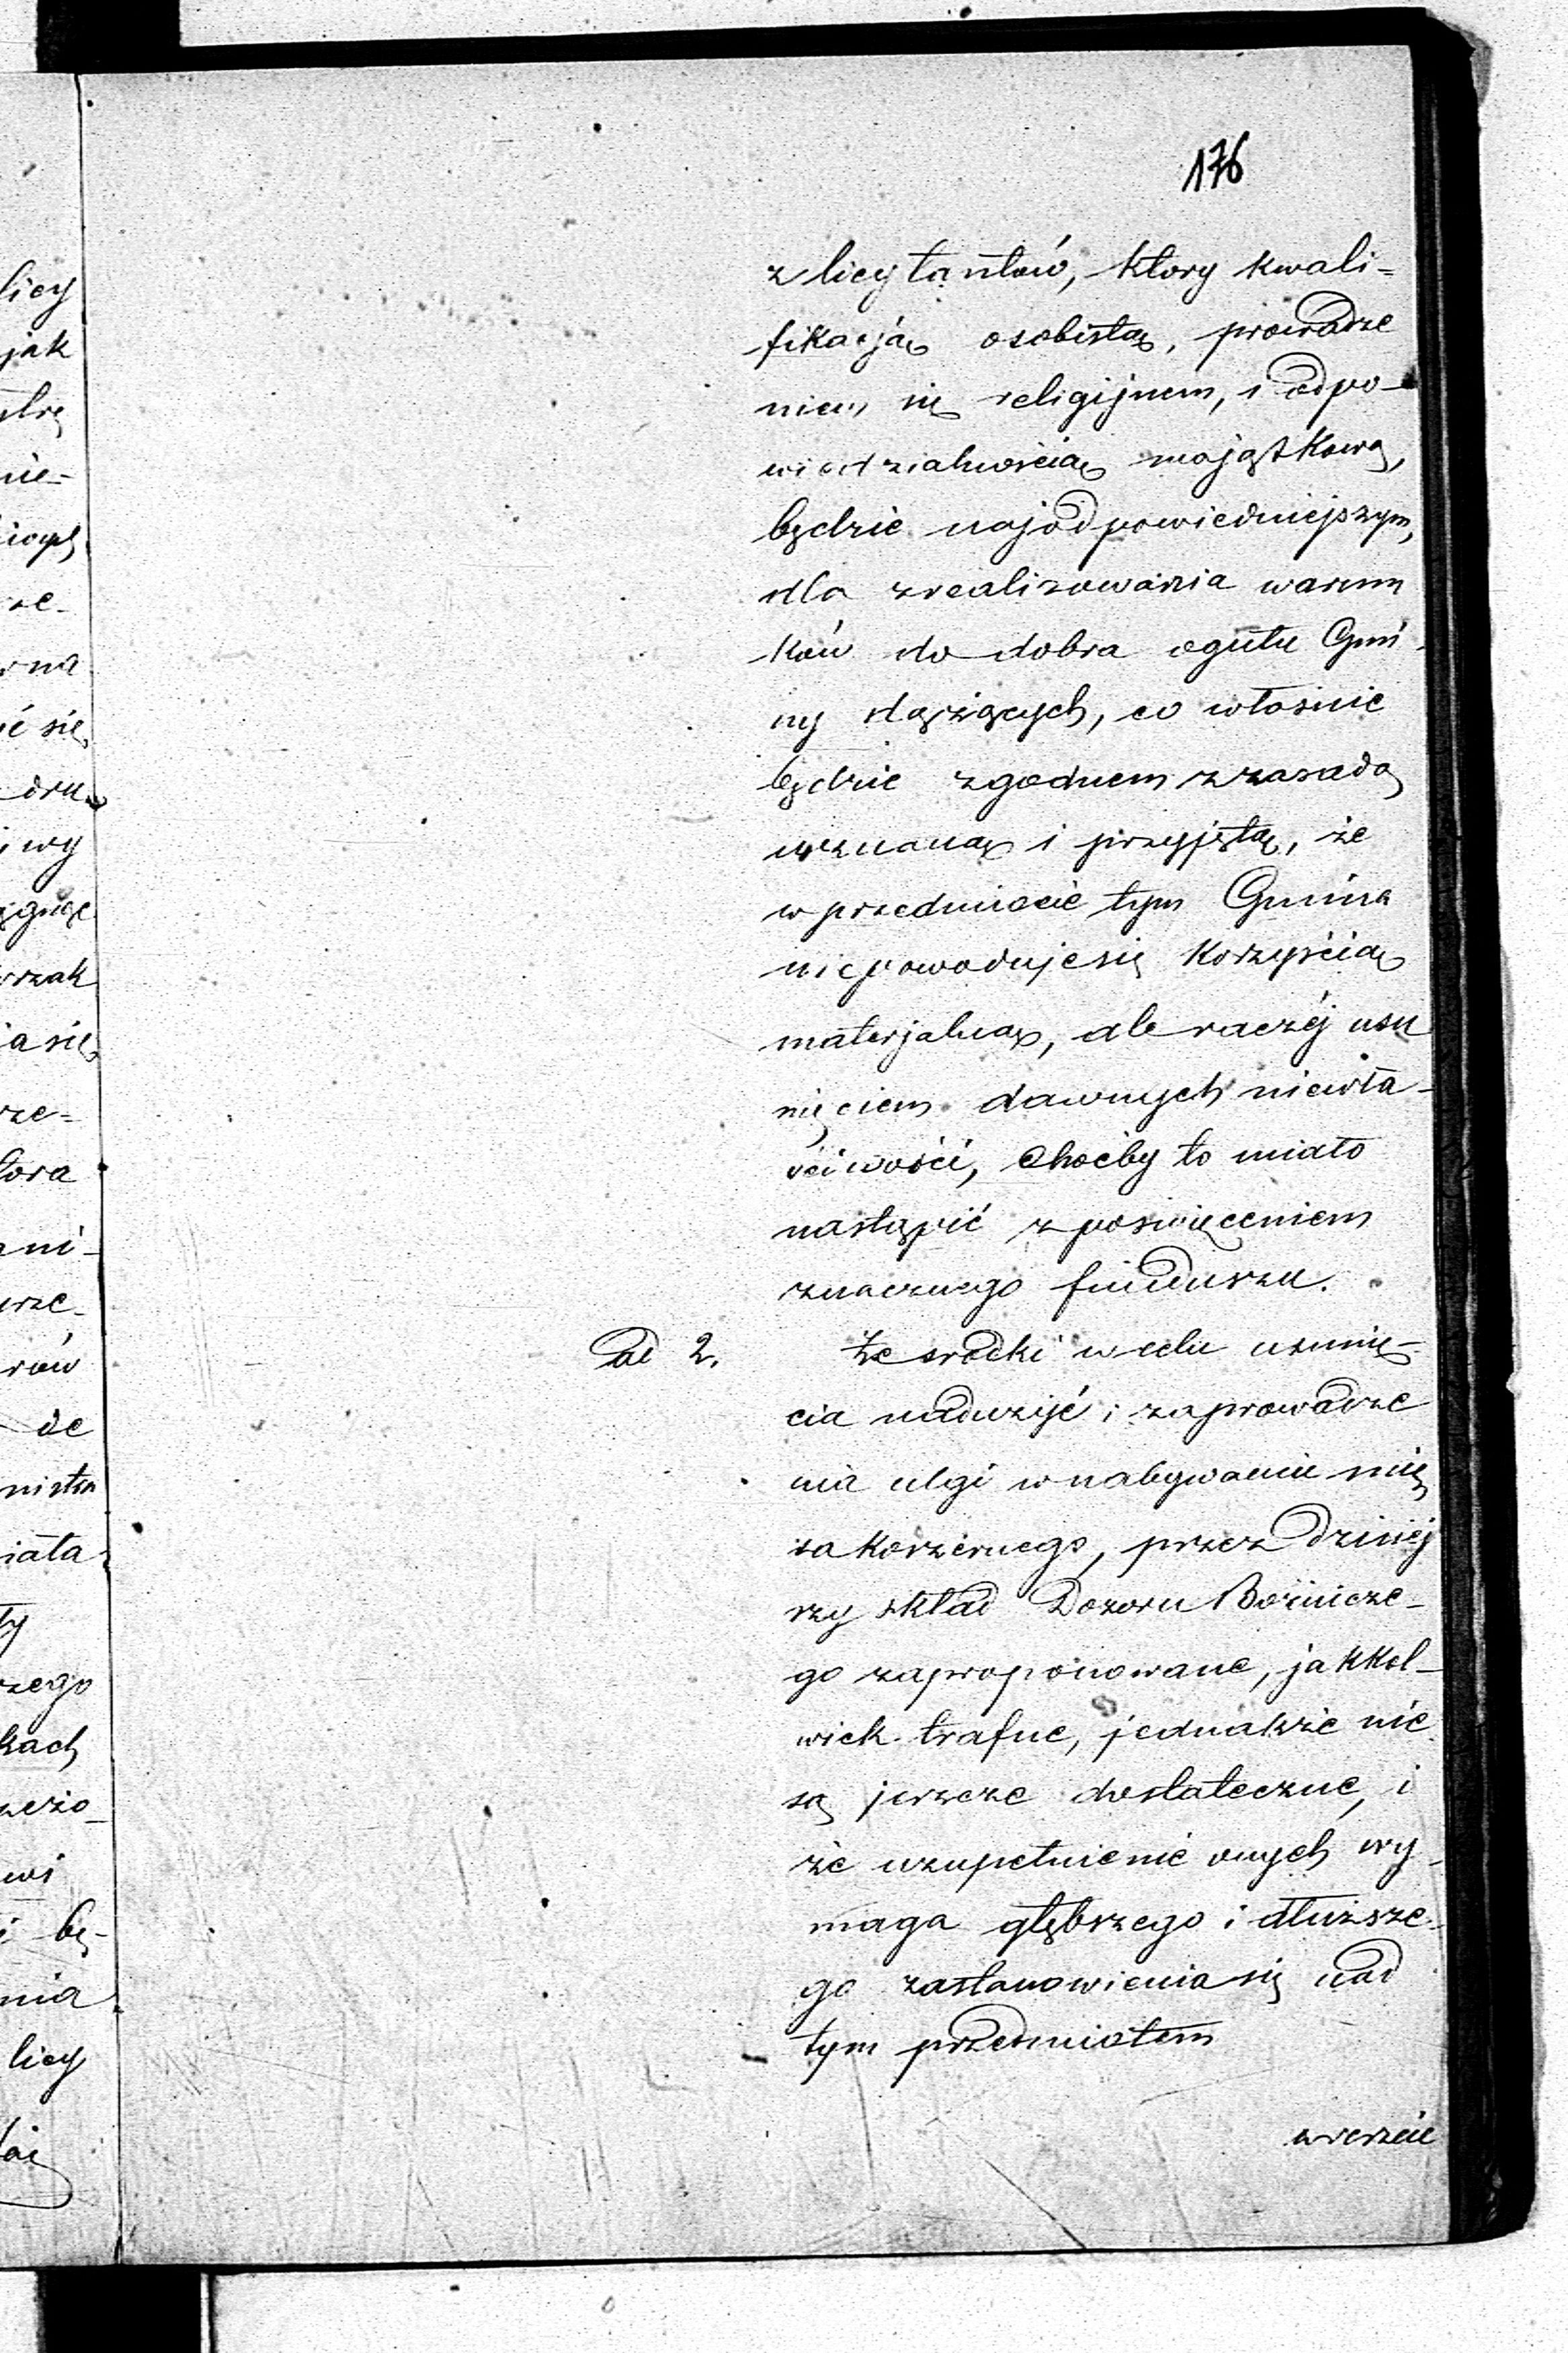 176
licy
jak
nie-
ze-
wna
ić się
dru
i wy
rzak
ia się
rze-
tora
ani-
wsze-
rów
de
nistra
iata
ty
rzego
kach
wi
i bę-
nia
licy
z licytantów, ktory kwali=
fikacją osobistą, prowadze
niem się religijnem, i odpo-
wiedzialnością majątkową,
będzie najodpowiedniejszym,
dla zrealizowania warun
ków do dobra ogułu Gmi-
ny dążących, co własnie
będzie zgodnem z zasadą
uznaną i przyjętą, że
w przedmiocie tym Gmina
niepowoduje się korzyścią
materjalną, ale raczéj usu
nięciem dawnych niewła-
ściwości, choćby to miało
nastąpić z poswięceniem
znacznego funduszu.
ad 2. Że srodki w celu usunię-
cia nadużyć i zaprowadze
nia ulgi w nabywaniu mię
sa koszernego, przez dzisiej
szy skład Dozoru Bożnicze-
go zaproponowane, jakkol-
wiek trafne, jednakże nie
są jeszcze dostateczne, i
że uzupełnienie onych wy-
maga głębszego i dłuższe-
go zastanowienia się nad
tym przedmiotem
wreszcie